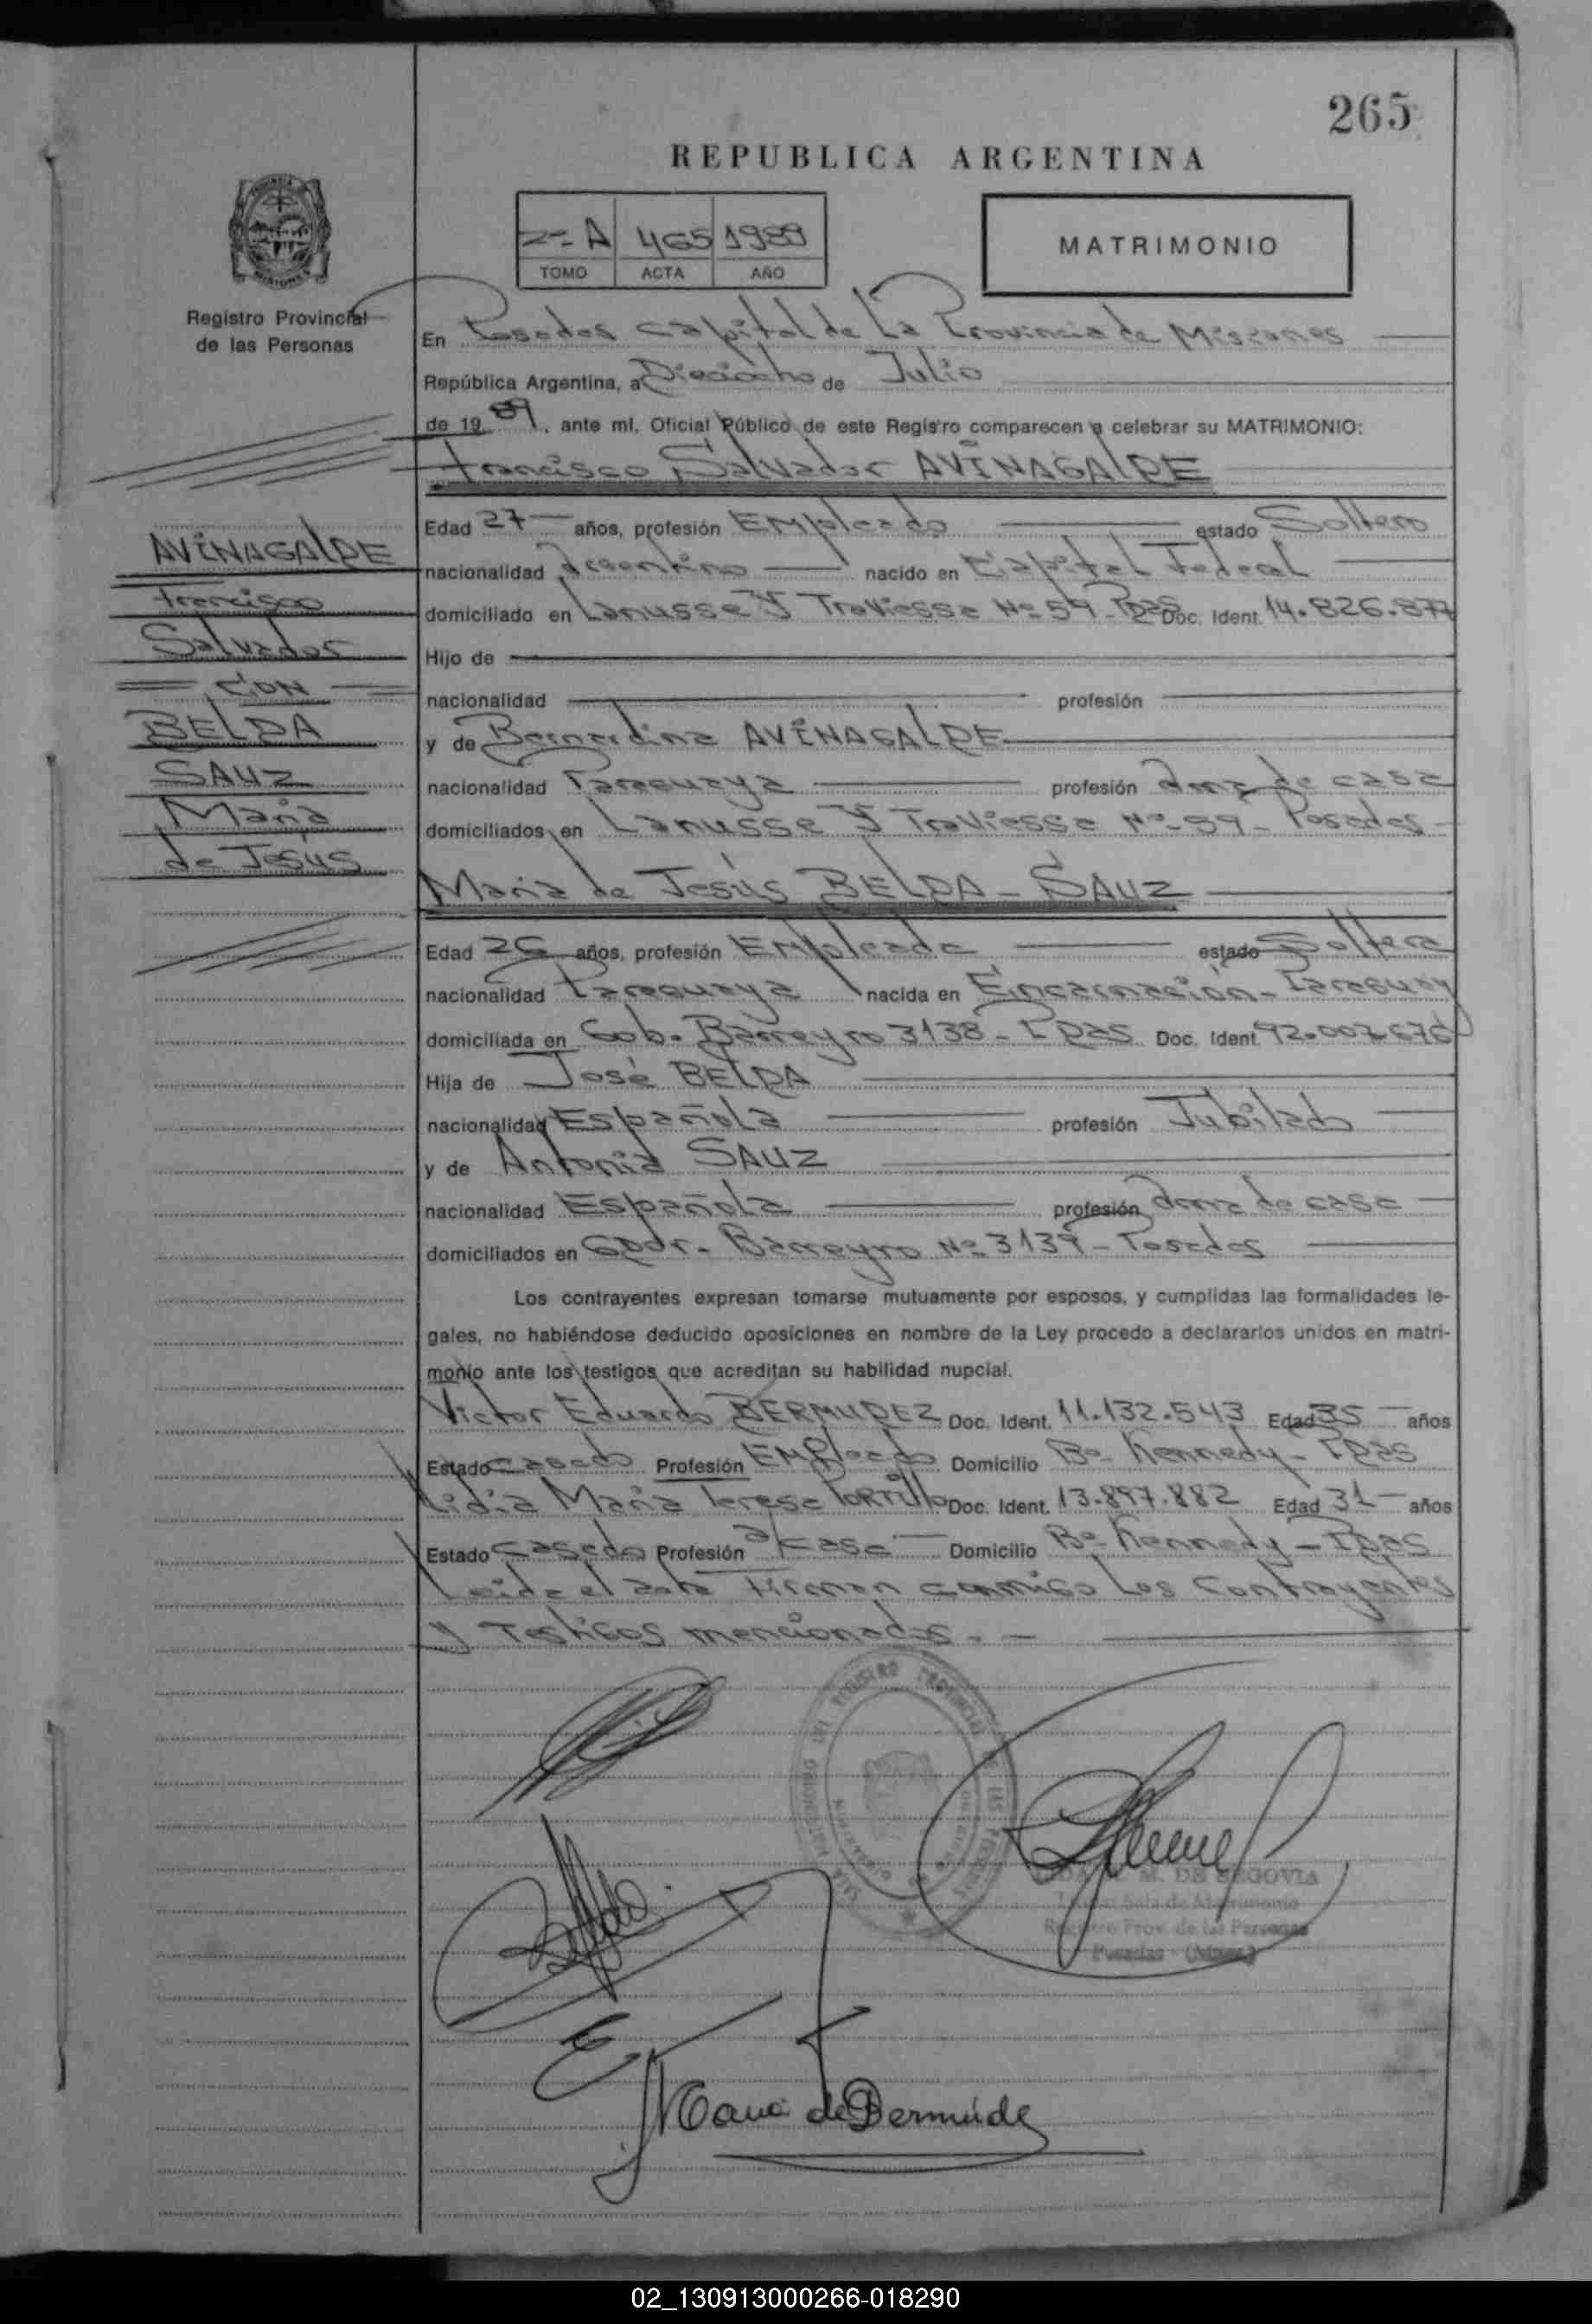 265
REPUBLICA ARGENTINA
2º A 465 1989
TOMO ACTA AÑO
MATRIMONIO
Registro Provincial
de las Personas
En Posadas Capital de La Provincia de Misiones
República Argentina, a Dieciocho de Julio
de 1989, ante mí, Oficial Público de este Registro comparecen a celebrar su MATRIMONIO:
Francisco Salvador AVIÑAGALDE
Edad 27 años, profesión Empleado estado Soltero
nacionalidad Argentino nacido en Capital Federal
domiciliado en Lanusse y Traviessa Nº 59 - Pdas Doc. Ident. 14.826.877
Hijo de
nacionalidad profesión
y de Bernardina AVIÑAGALDE
nacionalidad Paraguaya profesión ama de casa
domiciliados en Lanusse y Traviessa Nº 59 - Posadas
María de Jesús BELDA - SAUZ
Edad 26 años, profesión Empleada estado Soltera
nacionalidad Paraguaya nacida en Encarnación - Paraguay
domiciliada en Gob. Barreyro 3138 - Pdas Doc. Ident. 92.007.676
Hija de José BELDA
nacionalidad Española profesión Jubilado
y de Antonia SAUZ
nacionalidad Española profesión ama de casa
domiciliados en Gdor. Barreyro Nº 3139 - Posadas
Los contrayentes expresan tomarse mutuamente por esposos, y cumplidas las formalidades le-
gales, no habiéndose deducido oposiciones en nombre de la Ley procedo a declararlos unidos en matri-
monio ante los testigos que acreditan su habilidad nupcial.
Victor Eduardo BERMUDEZ Doc. Ident. 11.132.543 Edad 35 años
Estado casado Profesión Empleado Domicilio Bº Kennedy - Pdas
Lidia María Teresa PORTILLO Doc. Ident. 13.897.882 Edad 31 años
Estado casado Profesión a casa Domicilio Bº Kennedy - Pdas
Leida el acta firman conmigo Los Contrayentes
y Testigos mencionados. -
AVIÑAGALDE
Francisco
Salvador
CON
BELDA
SAUZ
María
de Jesús
M. DE SEGOVIA
Sala de Matrimonio
Registro Prov. de las Personas
Posadas (Mnes.)
de Bermúdez
02_130913000266-018290